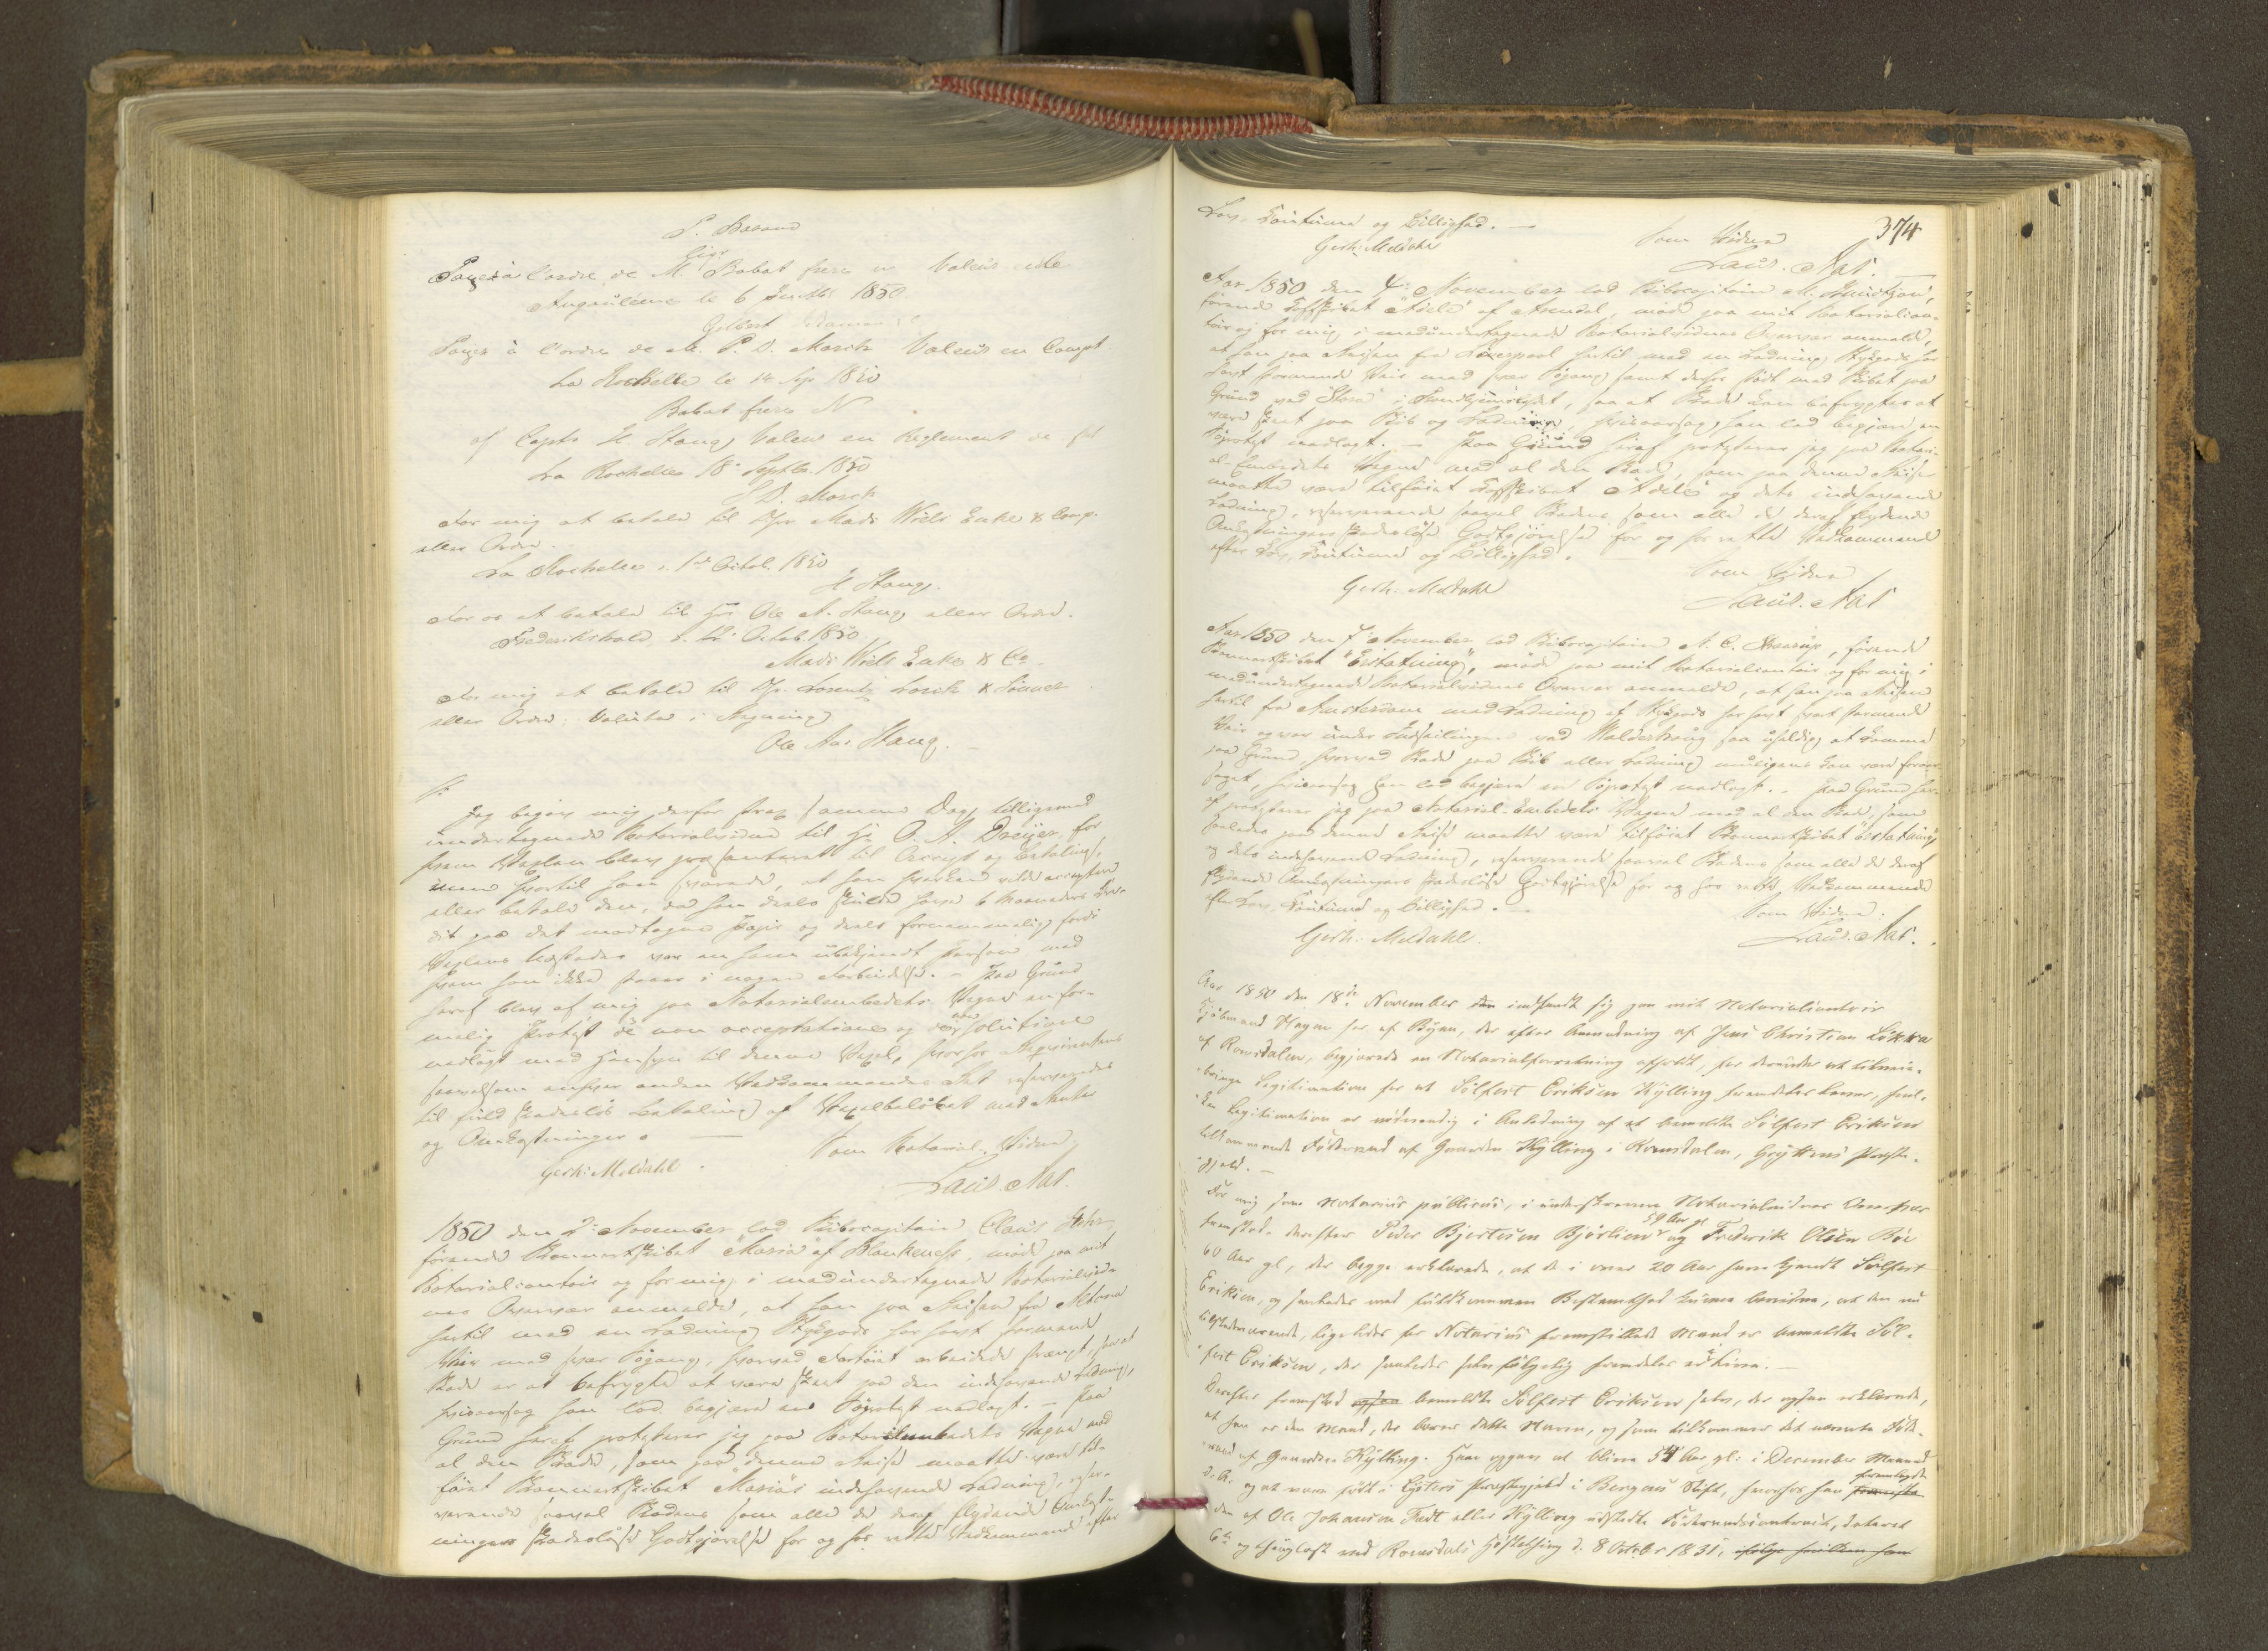 P. Besand
Ligr
Payez à l'ordre de M. Babat freres Valeur
Angoulême le 6 Juillet 1850
Gilbert
Payez à l'ordre de M. P. D. Morch Valeur en Compt
La Rochelle le 14 Sep 1850
Babat freres N
of Captn H. Stang Valeur en Reglement de
La Rochelle 18 Septbr 1850
P. D. Morch
For mig at betale til Hr. Mads Wiels Enke & Comp.
eller Ordre.
La Rochelle d. 1ste Octob. 1850
H Stang.
For os at betale til Hr Ole A. Stang eller Ordre.
Frederikshald, d. 12 Octob. 1850
Mads Wiels Enke & Co.
For mig at betale til Hr. Lorentz Lorck & Sönner
eller Ordre; Valuta i Regning
Ole Ant Stang.
Jeg begav mig derfor strax samme Dag tilligemed
undertegnede Notarialvidne til Hr O. A. Dreyer, for
hvem Vexlen blev præsenteret til Accept og Betaling,
men hvortil han svarede, at han hverken vilde acceptere
eller betale den, da han deels skulde have 6 Maaneders Cre-
dit paa det modtagne Papir og deels fornemmelig fordi
Vexlens Udsteder var en ham ubekjendt Person med
hvem han ikke staaer i nogen Forbindelse. - Paa Grund
heraf blev af mig paa Notarialembedets Vegne en for-
melig Protest de non acceptatione og de non solutione
nedlagt med Hensyn til denne Vexel, hvorfor Reqvirentens
saavelsom enhver anden Vedkommendes Ret reserveredes
til fuld skadeslös Betaling af Vexelbelöbet med Renter
og Omkostninger. —
Gerh: Meldahl. Som Notarial-Vidne
Laur. Aas.
1850 den 2. November lod Skibscapitain Claus
förende Skonnertskibet "Maria" af Blankenese, möde paa mit
Notarialcontoir og for mig i medundertegnede Notarialvid-
nes Overvær anmelde, at han paa Reisen fra Altona
hertil med en Ladning Stykgods har havt stormende
Veir med svær Sögang, hvorved Fartöiet arbeidede strængt, saa at
Skade er at befrygte at være skeet paa den indehavende Ladning,
hvisaarsag han lod begjære en Söprotest nedlagt. — Paa
Grund heraf protesterer jeg paa Notarialembedets Vegne mod
al den Skade, som paa denne Reise maatte være til-
föiet Skonnertskibet Marias indehavende Ladning, reser-
verende saavel Skadens som alle de deraf flydende Omkost-
ningers skadeslöse Godtgjörelse for og hos rette Vedkommende efter
374
Lov, Coutume og Billighed. —
Gerh: Meldahl Som Vidne
Laur. Aas.
Aar 1850 den 4. November lod Skibscapitain M.
förende Toftskibet "Adele" af Arendal, möde paa mit Notarialcon-
toir og for mig i medundertegnede Notarialvidnes Overvær anmelde,
at han paa Reisen fra Liverpool hertil med en Ladning Stykgods har
havt stormende Veir med svær Sögang samt derhos stödt med Skibet paa
Grund ved i saa at Skade kan befrygtes at
være skeet paa Skib og Ladning, hvisaarsag han lod begjære en
Söprotest nedlagt. — Paa Grund heraf protesterer jeg paa Notari-
al-Embedets Vegne mod al den Skade, som paa denne Reise
maatte være tilföiet Toftskibet "Adele" og dets indehavende
Ladning, reserverende saavel Skadens som alle de deraf flydende
Omkostningers skadeslöse Godtgjörelse for og hos rette Vedkommende
efter Lov, Coutume og Billighed.
Gerh. Meldahl Som Vidne
Laur. Aas
Aar 1850 den 7. November lod Skibscapitain A. C. förende
Skonnertskibet möde paa mit Notarialcontoir og for mig i
medundertegnede Notarialvidnes Overvær anmelde, at han paa Reisen
hertil fra Amsterdam med Ladning af Stykgods har havt svært stormende
Veir og var under Indseilingen ved Walderhoug saa uheldig at komme
paa Grund, hvorved Skade paa Skib eller Ladning muligens kan være foraar-
saget, hvisaarsag han lod begjære en Söprotest nedlagt. — Paa Grund her-
af protesterer jeg paa Notarial-Embedets Vegne mod al den Skade, som
saaledes paa denne Reise maatte være tilföiet Skonnertskibet
og dets indehavende Ladning, reserverende saavel Skadens som alle de deraf
flydende Omkostningers skadeslöse Godtgjörelse for og hos rette Vedkommende
efter Lov, Coutume og Billighed. —
Gerh. Meldahl. Som Vidne:
Laur. Aas.
Aar 1850 den 18de November indfandt sig paa mit Notarialcontoir
Kjöbmand Hagen her af Byen, der efter Anmodning af Jens Christian Lökken
af Romsdalen, begjærede en Notarialforretning afholdt, for derunder at tilveie-
bringe Legitimation for at Sölfest Eriksen Kylling fremdeles lever, hvil-
ken Legitimation er nödvendig i Anledning af et bemeldte Sölfest Eriksen
tilkommende Föderaad af Gaarden Kylling i Romsdalen, Gryttens Præste-
gjeld. —
For mig som Notarius publicus, i underskrevne Notarialvidnes Overvær
fremstod derefter Peder Bjertesen Björlien 59 Aar gl og Frederik Olsen Böe
60 Aar gl, der begge erklærede, at de i over 20 Aar have kjendt Sölfest
Eriksen, og saaledes med fuldkommen Bestemthed kunne bevidne, at den nu
tilstedeværende, ligeledes for Notarius fremstillede Mand er bemeldte Söl-
fest Eriksen, der saaledes selvfölgelig fremdeles er i Live. —
Derefter fremstod bemeldte Sölfest Eriksen selv, der ogsaa erklærede,
at han er den Mand, der bærer dette Navn, og som tilkommer det nævnte Föde-
raad af Gaarden Kylling. Han opgav at blive 54 Aar gl: i December Maaned
d. A. og at være födt i Lysters Præstegjeld i Bergens Stift, hvorhos han fremlagde
den af Ole Johansen Fedt eller Kylling udstedte Föderaadscontract, dateret
6te og thinglæst ved Romsdals Höstething d. 8 October 1831, ifölge hvilken han